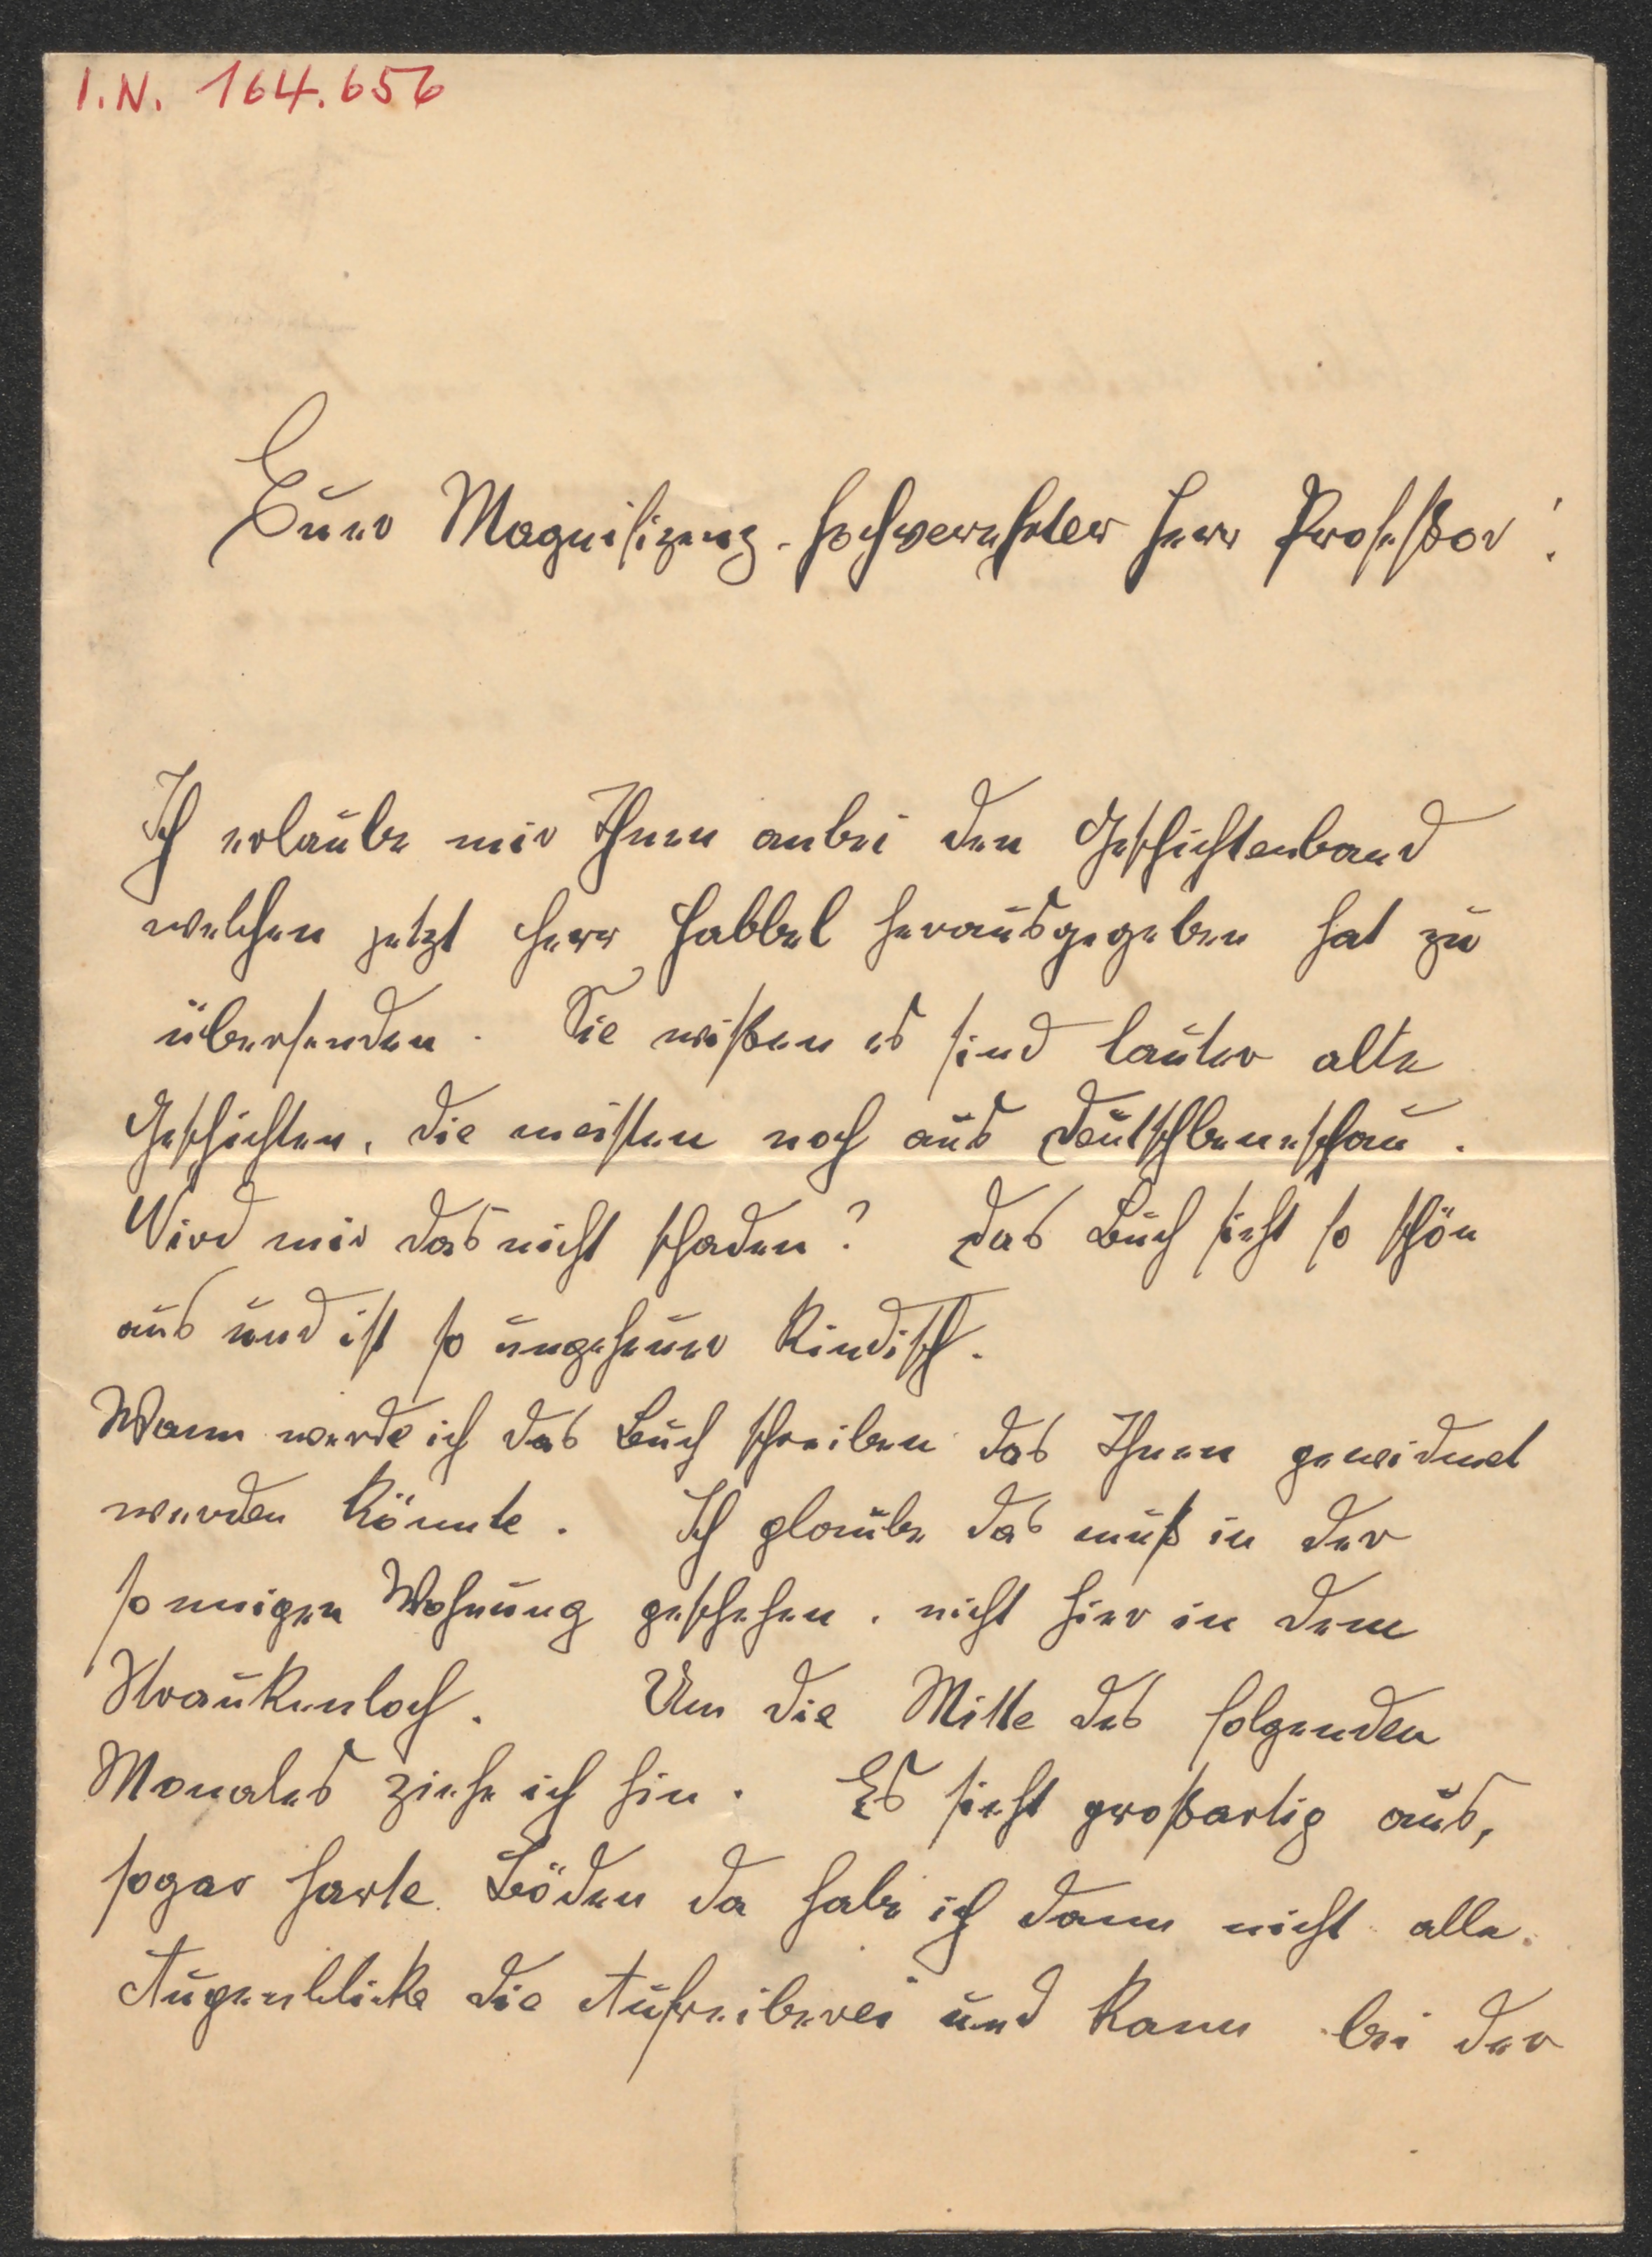 I.N. 164.656
Euer Magnifizenz. hochverehrter Herr Profeßor!
Ich erlaube mir Ihnen anbei den Geschichtenband
welchen jetzt Herr Habbel herausgegeben hat zu
übersenden. Sie wißen es sind lauter alte
Geschichten, die meisten noch aus Deutschbeneschau.
Wird mir das nicht schaden? Das Buch sieht so schön
aus und ist so ungeheuer kindisch.
Wann werde ich das Buch schreiben das Ihnen gewidmet
werden könnte. Ich glaube das muß in der
sonnigen Wohnung geschehen, nicht hier in dem
Straukenloch. Um die Mitte des folgenden
Monates ziehe ich hin. Es sieht großartig aus,
sogar harte Böden da habe ich dann nicht alle
Augenblicke die Aufreiberei und kann bei der